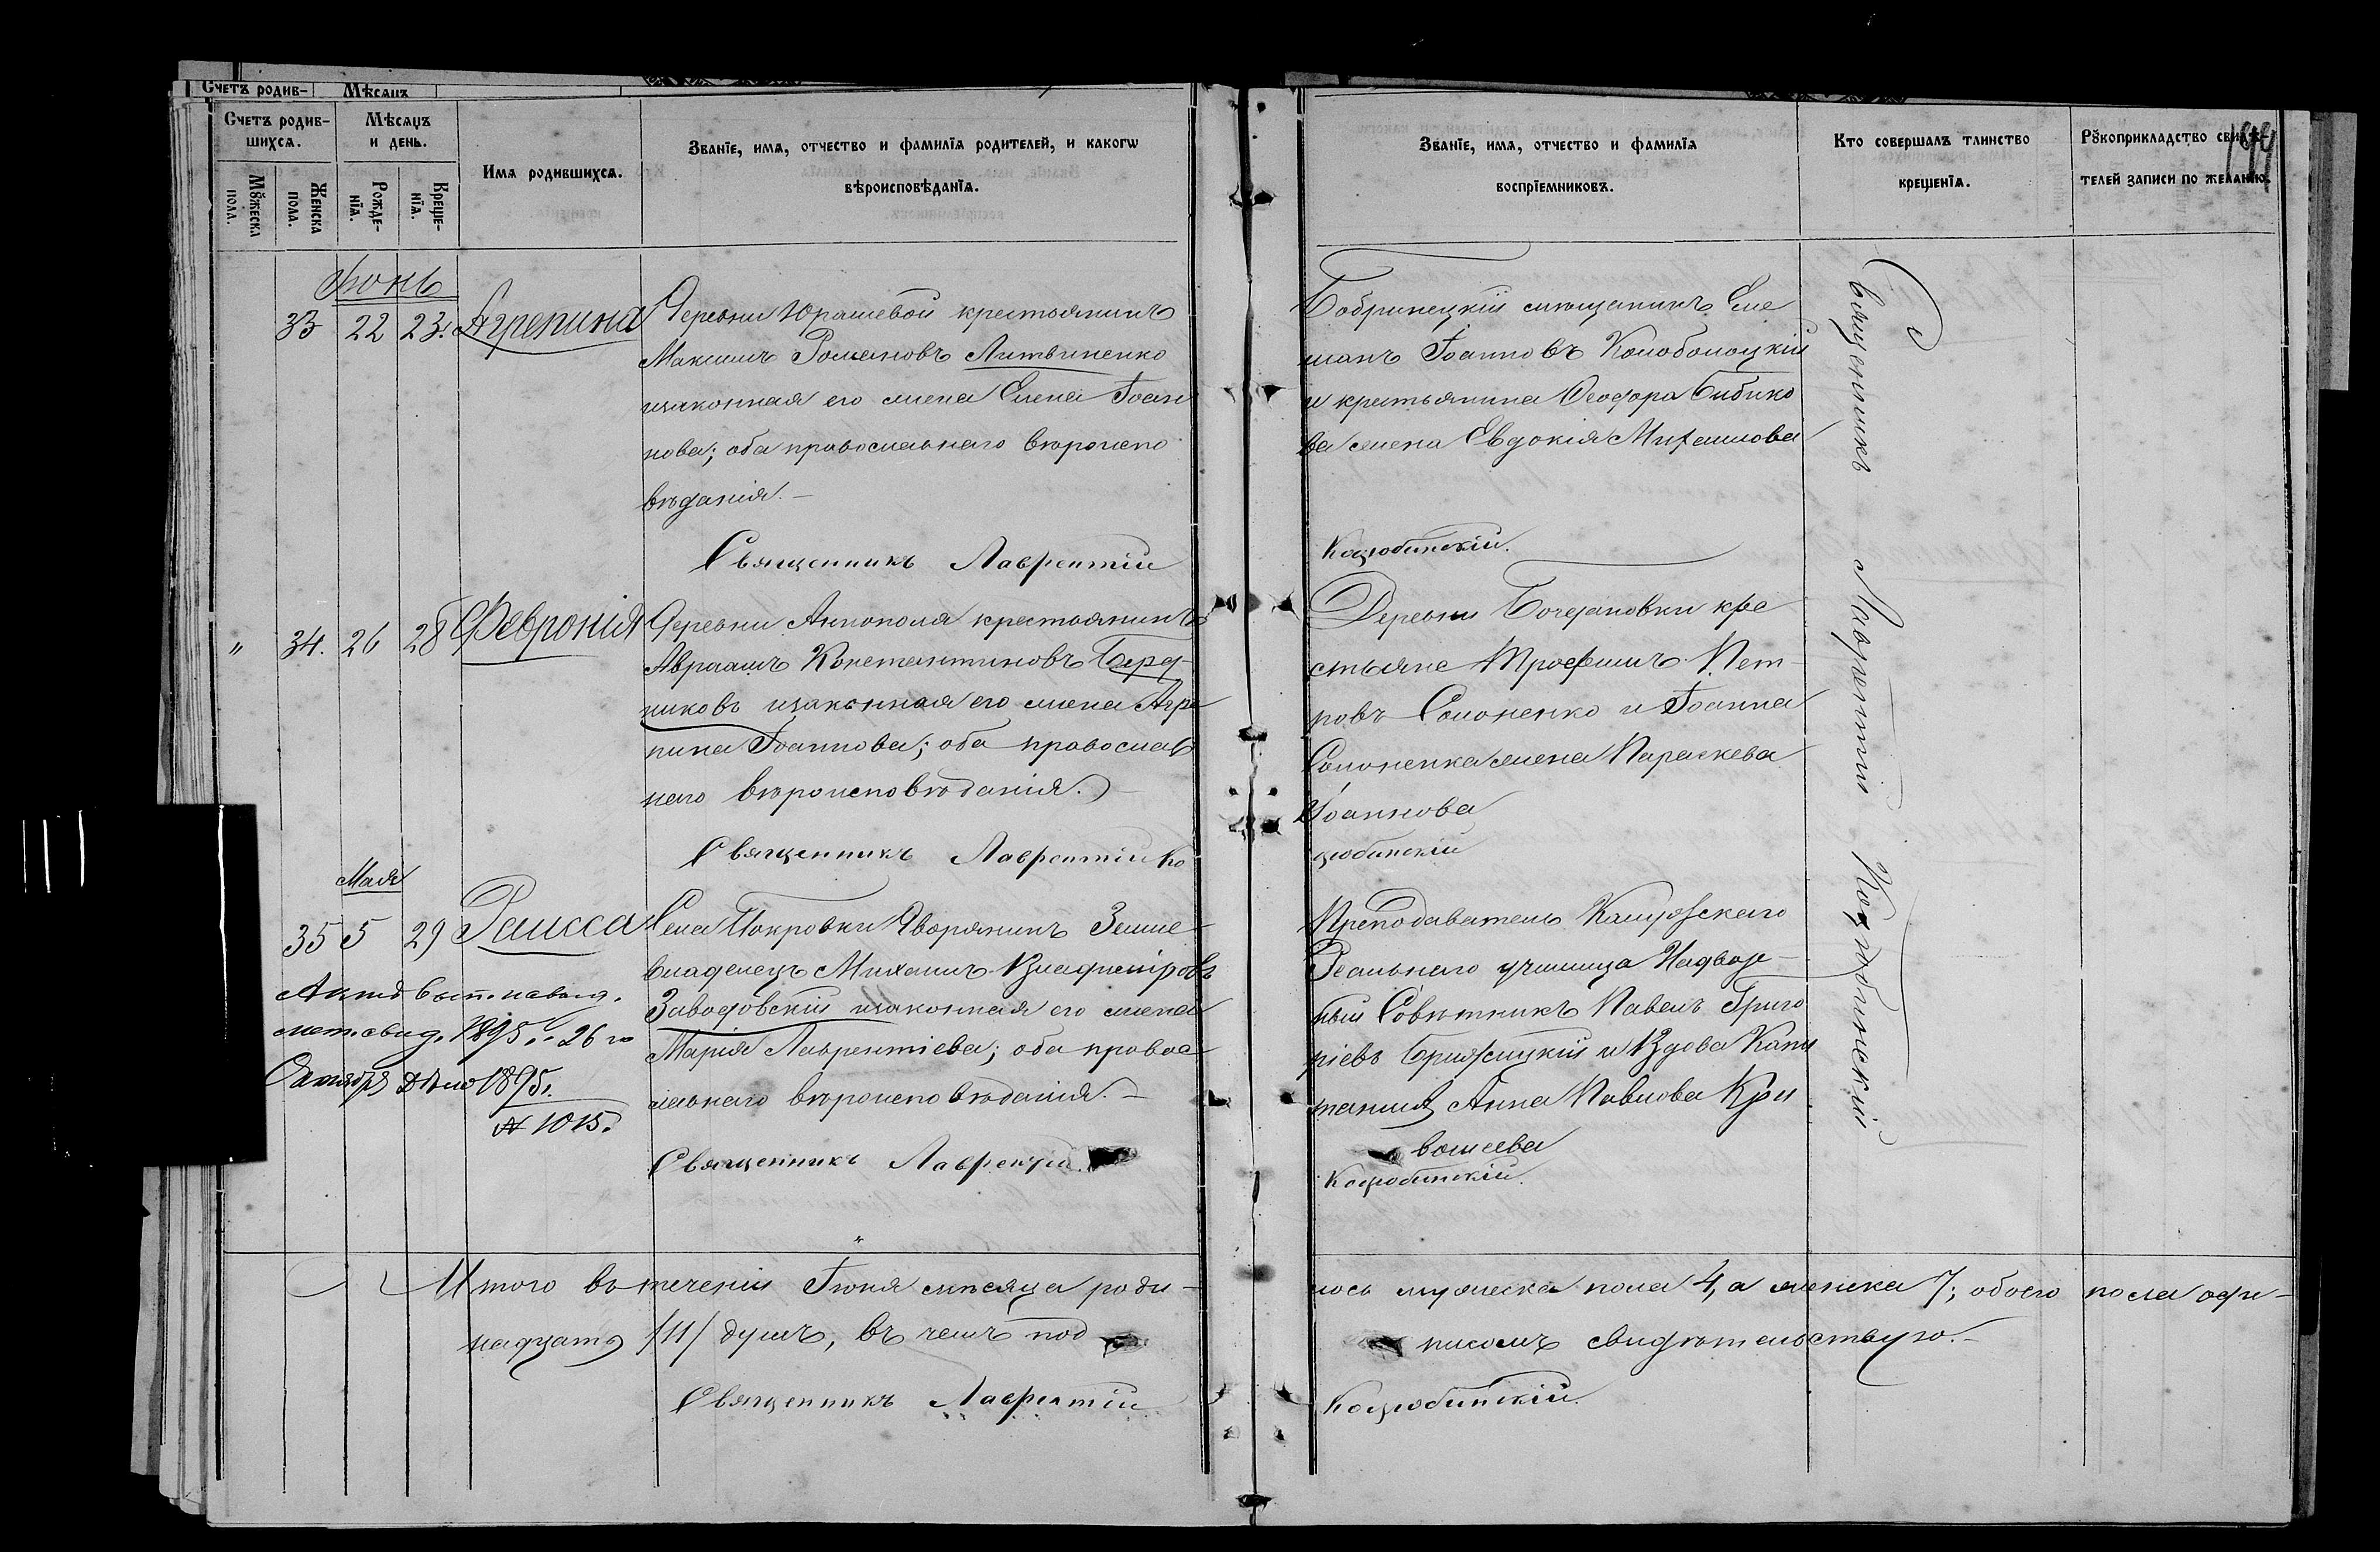 Счетъ родив-
Мѣсяцъ
Счетъ родив-
шихся.
Мѣсяцъ
и день.
Мꙋжеска
пола.
Женска
пола.
Рожде-
нїя.
Креще-
нїя.
Имя родившихся.
Званїе, имя, отчество и фамилїя родителей, и какогѡ
вѣроисповѣданїя.
Званїе, имя, отчество и фамилїя
воспрїемниковъ.
Кто совершалъ таинство
крещенїя.
Рꙋкоприкладство свидѣ-
телей записи по желанїю.
Іюнь
33 22 23. Агрепина
Деревни Юрашевой крестьянинъ
Максимъ Романовъ Литвиненко
изаконная его жена Елена Іоан
нова; оба православнаго вѣроиспо
вѣданія.-
Священникъ Лаврентій
Бобринецкій мѣщанинъ Еме
ліанъ Іоанновъ
и крестьянина Ѳеодора Бибико
ва жена Евдокія Михаилова
Коцюбинскій.
" 34. 26 28 Февронія
Деревни Аннополя крестьянинъ
Авраамъ Константиновъ Берд-
никовъ изаконная его жена Агри
пина Іоаннова; оба православ
наго вѣроисповѣданія.
Священникъ Лаврентій Ко
Деревни кре
стьяне Трофимъ Пет-
ровъ Солоненко и Іоанна
Солоненка жена Параскева
Іоаннова
цюбинскій
Мая
35 5 29 Раисса
Актъ вып. навыд.
мет. свид. 1895 г. 26 го
Октября Дѣло 1895 г.
№ 1015.
Села Покровки Дворянинъ Земле
владелецъ Михаилъ Владиміровъ
Заводовскій изаконная его жена
Марія Лаврентіева; оба правос
лавнаго вѣроисповѣданія.-
Священникъ Лаврентій
Преподаватель
Реальнаго училища Надвор-
ный Совѣтникъ Павелъ Григо
ріевъ и Вдова Капи
танша Анна Павлова Кри
вошеева
Коцюбинскій.
Священникъ Лаврентій Коцюбинскій
Итого въ теченіи Іюня мѣсяца роди-
лось мужеска пола 4, а женска 7; обоего пола оди-
надцать /11/ душъ, въ чемъ под
писомъ свидѣтельствую.-
Священникъ Лаврентій
Коцюбинскій.